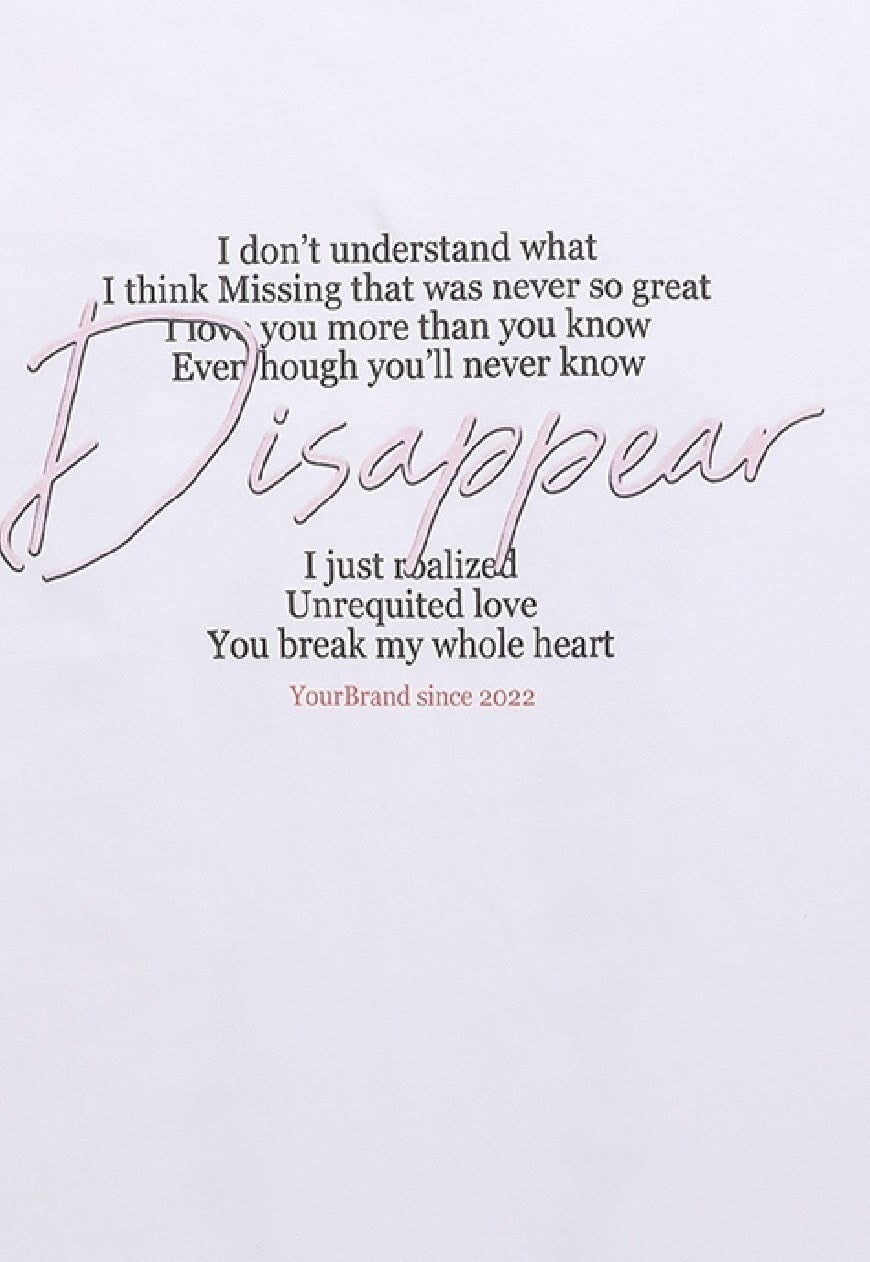 I don't understand what
I think Missing that was never so great
I love you more than you know
Even though you'll never know
Disappear
I just realized
Unrequited love
You break my whole heart
YourBrand since 2022